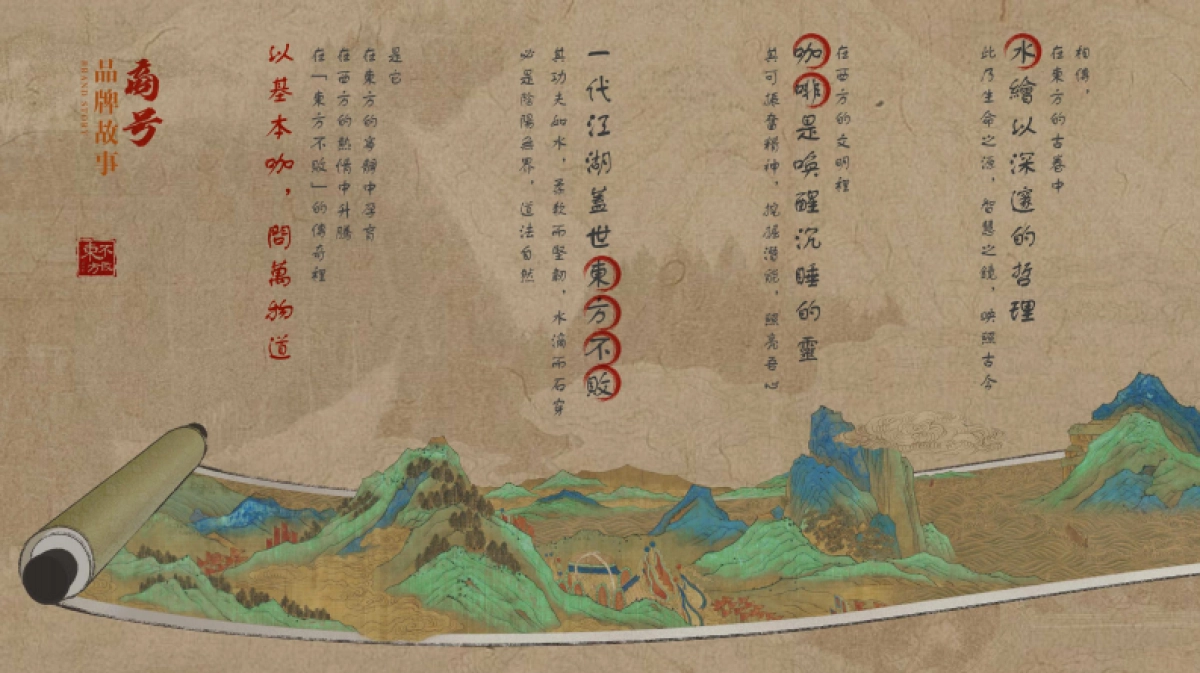 相傳，
在東方的古卷中
水繪以深邃的哲理
此乃生命之源，智慧之鏡，映照古今
在西方的文明裡
咖啡是喚醒沉睡的靈
其可振奮精神，挖掘潛能，照亮吾心
一代江湖蓋世東方不敗
其功夫如水，柔軟而堅韌，水滴而石穿
必是陰陽無界，道法自然
是它
在東方的寧靜中孕育
在西方的熱情中升騰
在「東方不敗」的傳奇裡
以基本咖，問萬物道
商号
品牌故事
BRAND STORY
東方不敗